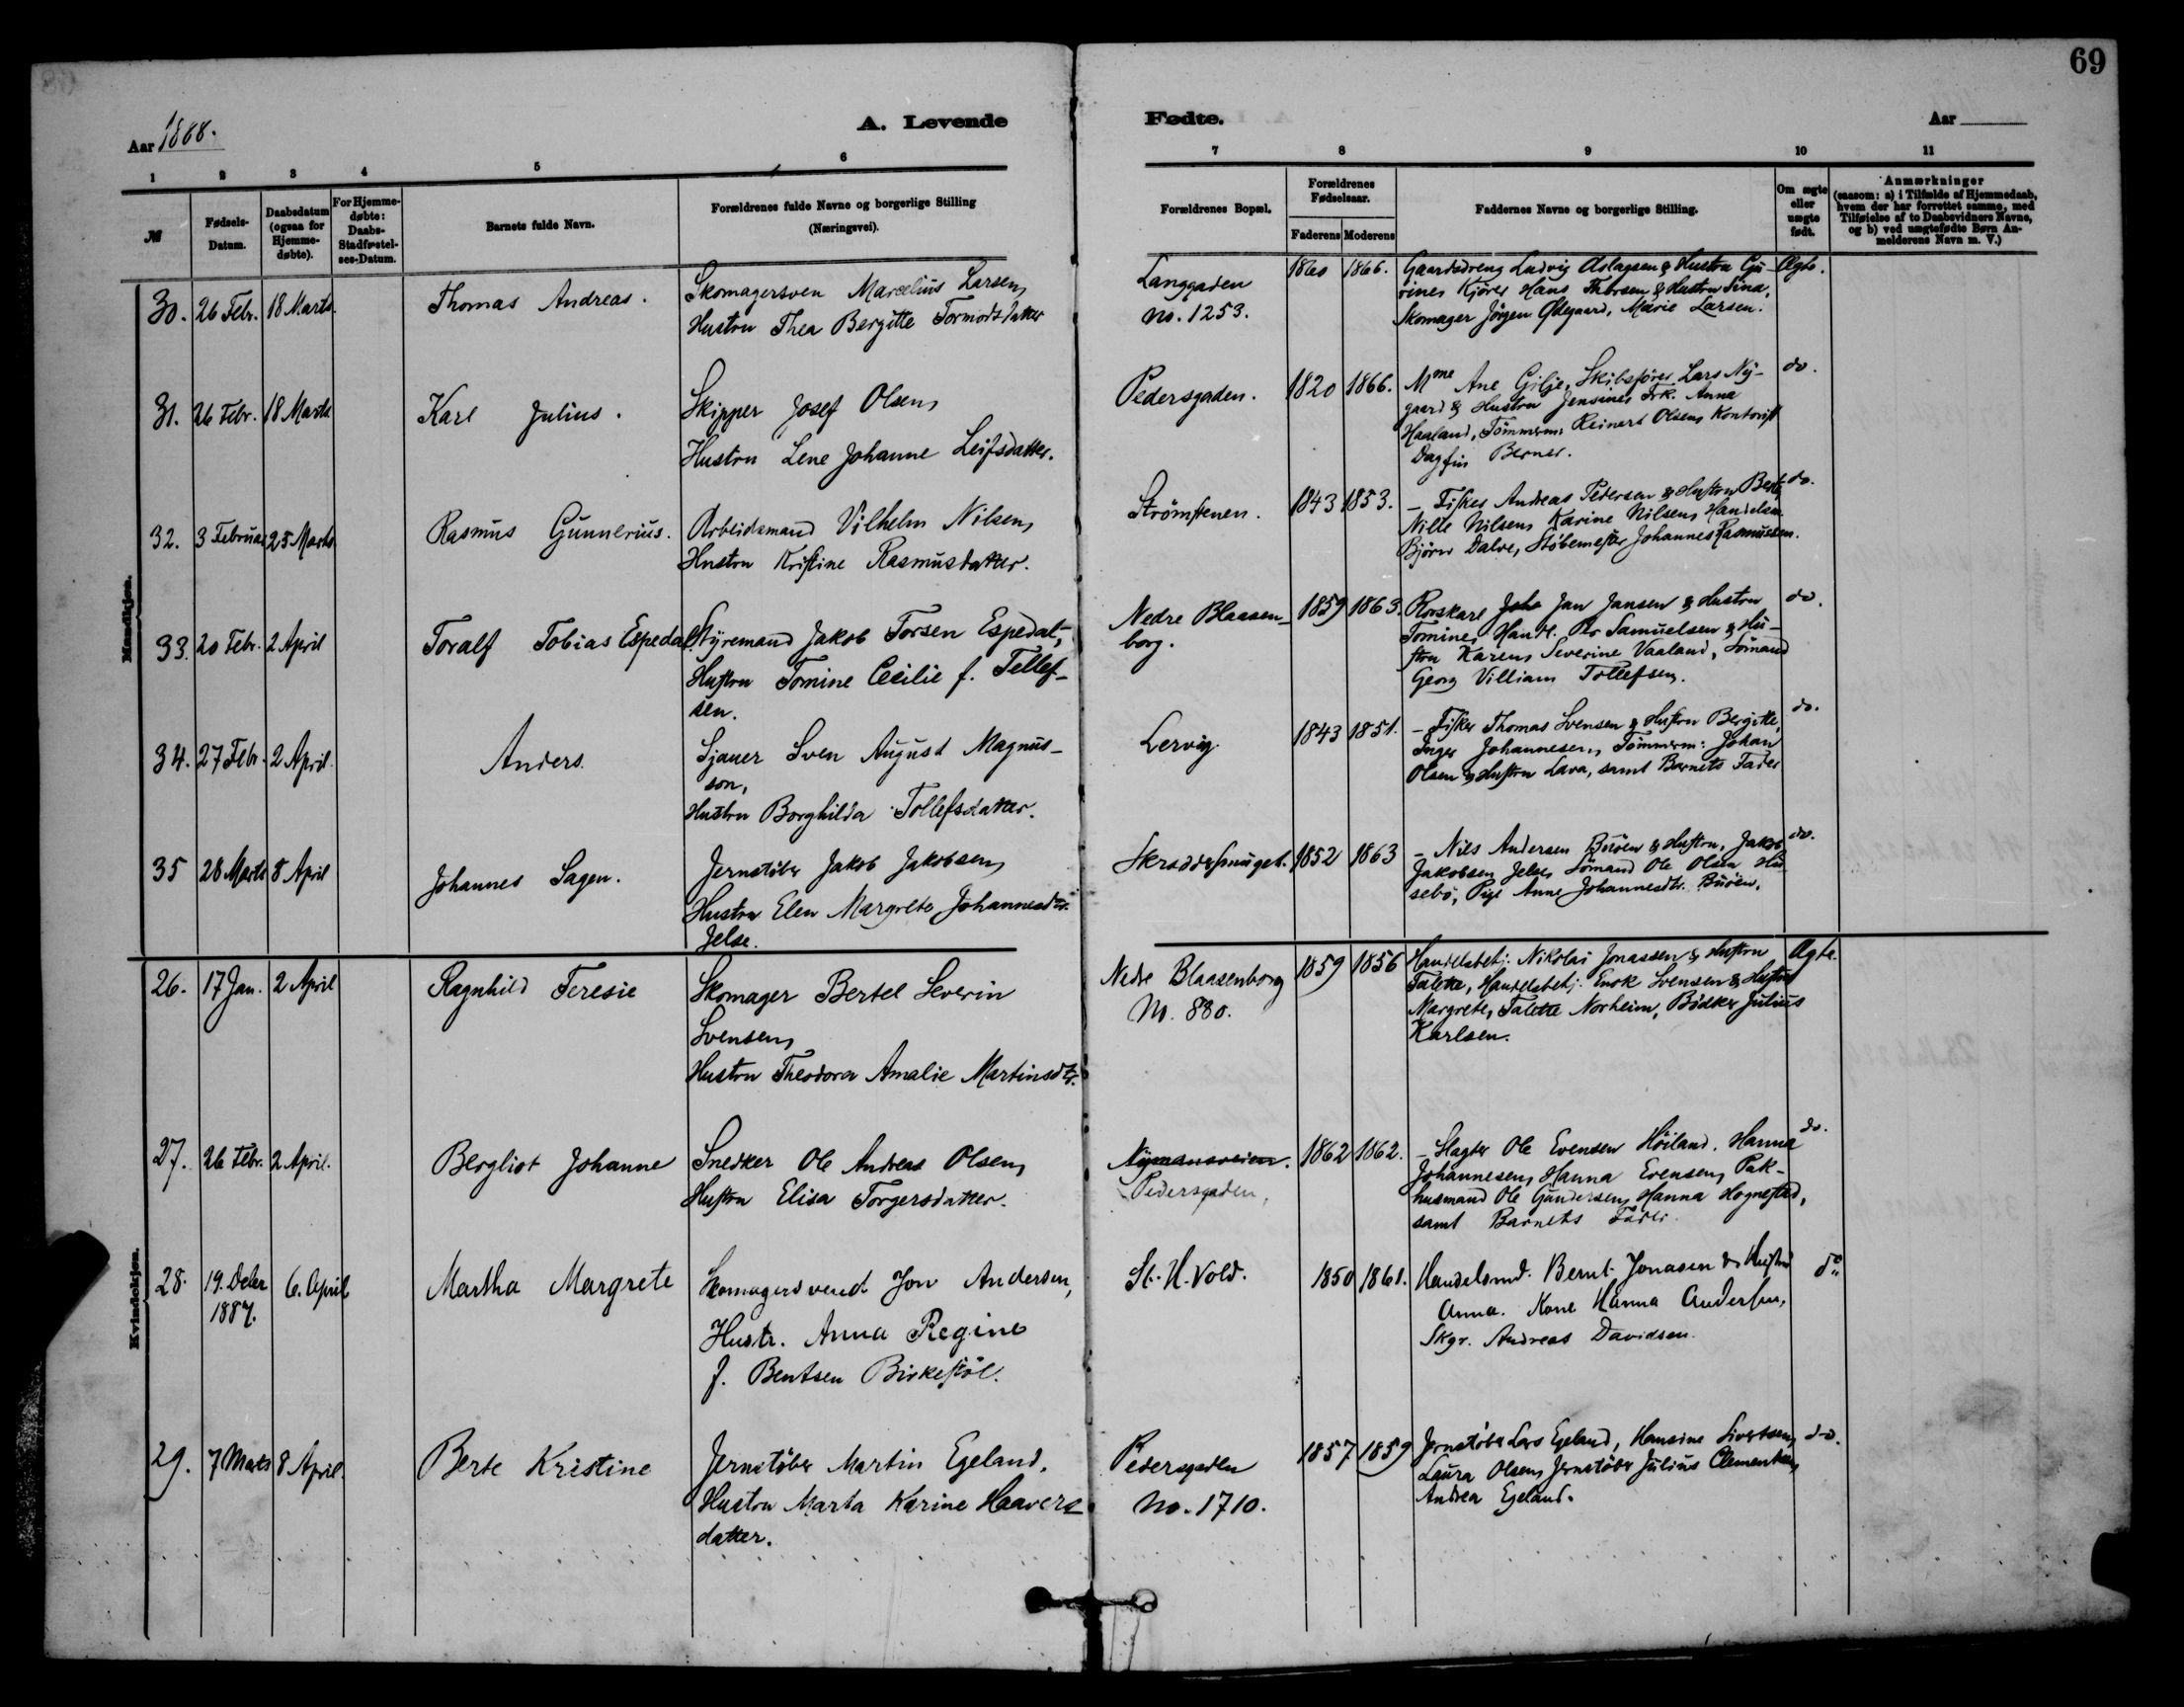 69
Aar 1888.
A. Levende
Fødte.
Aar
1 2 3 4 5 6 7 8 9 10 11
№
Fødsels-
Datum.
Daabsdatum
(ogsaa for
Hjemme-
døbte).
For Hjemme-
døbte:
Daabs-
Stadfæstel-
ses-Datum.
Barnets fulde Navn.
Forældrenes fulde Navne og borgerlige Stilling
(Næringsvei).
Forældrenes Bopæl.
Forældrenes
Fødselsaar.
Faderens Moderens
Faddernes Navne og borgerlige Stilling.
Om ægte
eller
uægte
født.
Anmærkninger
(saasom: a) i Tilfælde af Hjemmedaab,
hvem der har forrettet samme, med
Tilføielse af to Daabsvidners Navne,
og b) ved uægtefødte Børn An-
melderens Navn m. V.)
Mandkjøn.
30. 26 Febr. 18 Marts.
Thomas Andreas.
Skomagersven Marcelius Larsen,
Hustru Thea Bergitte Tormodsdatter
Langgaden
No. 1253.
1860 1866.
Gaardsdreng Ludvig Aslagsen & Hustru Gu-
rine, Kjører Hans Thorsen & Hustru Sina,
Skomager Jørgen Ødegaard, Marie Larsen.
Ægte.
31. 26 Febr. 18 Marts
Karl Julius.
Skipper Josef Olsen,
Hustru Lene Johanne Leifsdatter.
Pedersgaden.
1820 1866.
Mme Ane Gilje, Skibsfører Lars Ny-
gaard & Hustru Jensine, Frk. Anna
Haaland, Tømmerm: Reinert Olsen, Kontorist
Dagfin Berner.
do.
32. 3 Februar 25 Marts
Rasmus Gunnerius.
Arbeidsmand Vilhelm Nilsen,
Hustru Kristine Rasmusdatter.
Strømstenen.
1843 1853.
- Fisker Andreas Pedersen & Hustru Berte,
Nille Nilsen, Karine Nilsen, Handelsm.
Bjørn Dalve, Støbemester Johannes Rasmussen.
do.
33. 20 Febr. 2 April
Toralf Tobias Espedal.
Styremand Jakob Torsen Espedal,
Hustru Tomine Cecilie f. Tellef-
sen.
Nedre Blaasen-
borg.
1859 1863.
Rorskarl Joh Jan Jansen & Hustru
Tomine, Handl. Samuelsen & Hu-
stru Karen, Severine Vaaland, Sømand
Georg Villiam Tollefsen.
do.
34. 27 Febr. 2 April.
Anders.
Sjauer Sven August Magnus-
son,
Hustru Borghilda Tollefsdatter.
Lervig.
1843 1851.
- Fisker Thomas Svensen & Hustru Bergitte,
Inger Johannesen, Tømmerm: Johan
Olsen & Hustru Lava, samt Barnets Fader
do.
35 28 Marts 8 April
Johannes Sagen.
Jernstøber Jakob Jakobsen,
Hustru Elen Margrete Johannesdtr.
Jelse.
Skraddersmuget.
1852 1863
- Nils Andersen Buøen & Hustru, Jakob
Jakobsen Jelse, Sømand Ole Olsen Hu-
sebø, Pige Anne Johannesdtr. Buøen.
do.
Kvindekjøn.
26. 17 Jan. 2 April
Ragnhild Teresie
Skomager Bertel Severin
Svensen,
Hustru Theodora Amalie Martinsdtr.
Nedre Blaasenborg
No. 880.
1859 1856
Handelsbetj. Nikolai Jonassen & Hustru
Talette, Handelsbetj. Enok Svensen & Hustru
Margrete, Talette Norheim, Bødker Julius
Karlsen.
Ægte.
27. 26 Febr. 2 April.
Bergliot Johanne
Snedker Ole Andreas Olsen,
Hustru Elisa Torgersdatter.
Nymansveien.
Pedersgaden,
1862 1862.
- Slagter Ole Evensen Høiland. Hanna
Johannesen, Hanna Evensen, Pak-
husmand Ole Gundersen, Hanna Hognestad,
samt Barnets Fader.
do.
28. 19. Debr 6. April
1887.
Martha Margrete
Skomagersvend Jon Andersen,
Hustr. Anna Regine
f. Bentsen Birkestøl.
St. H. Vold.
1850 1861.
Handelsmd. Bernt Jonasen & Hustru
Anna. Kone Hanna Andersen,
Skgr. Andreas Davidsen.
do
29. 7 Marts 8 April.
Berte Kristine
Jernstøber Martin Egeland,
Hustru Marta Karine Haavers-
datter.
Pedersgaden
No. 1710.
1857 1859
Jernstøber Lars Egeland, Hansine Sivertsen,
Laura Olsen, Jernstøber Julius Clementsen,
Andrea Egeland.
do.